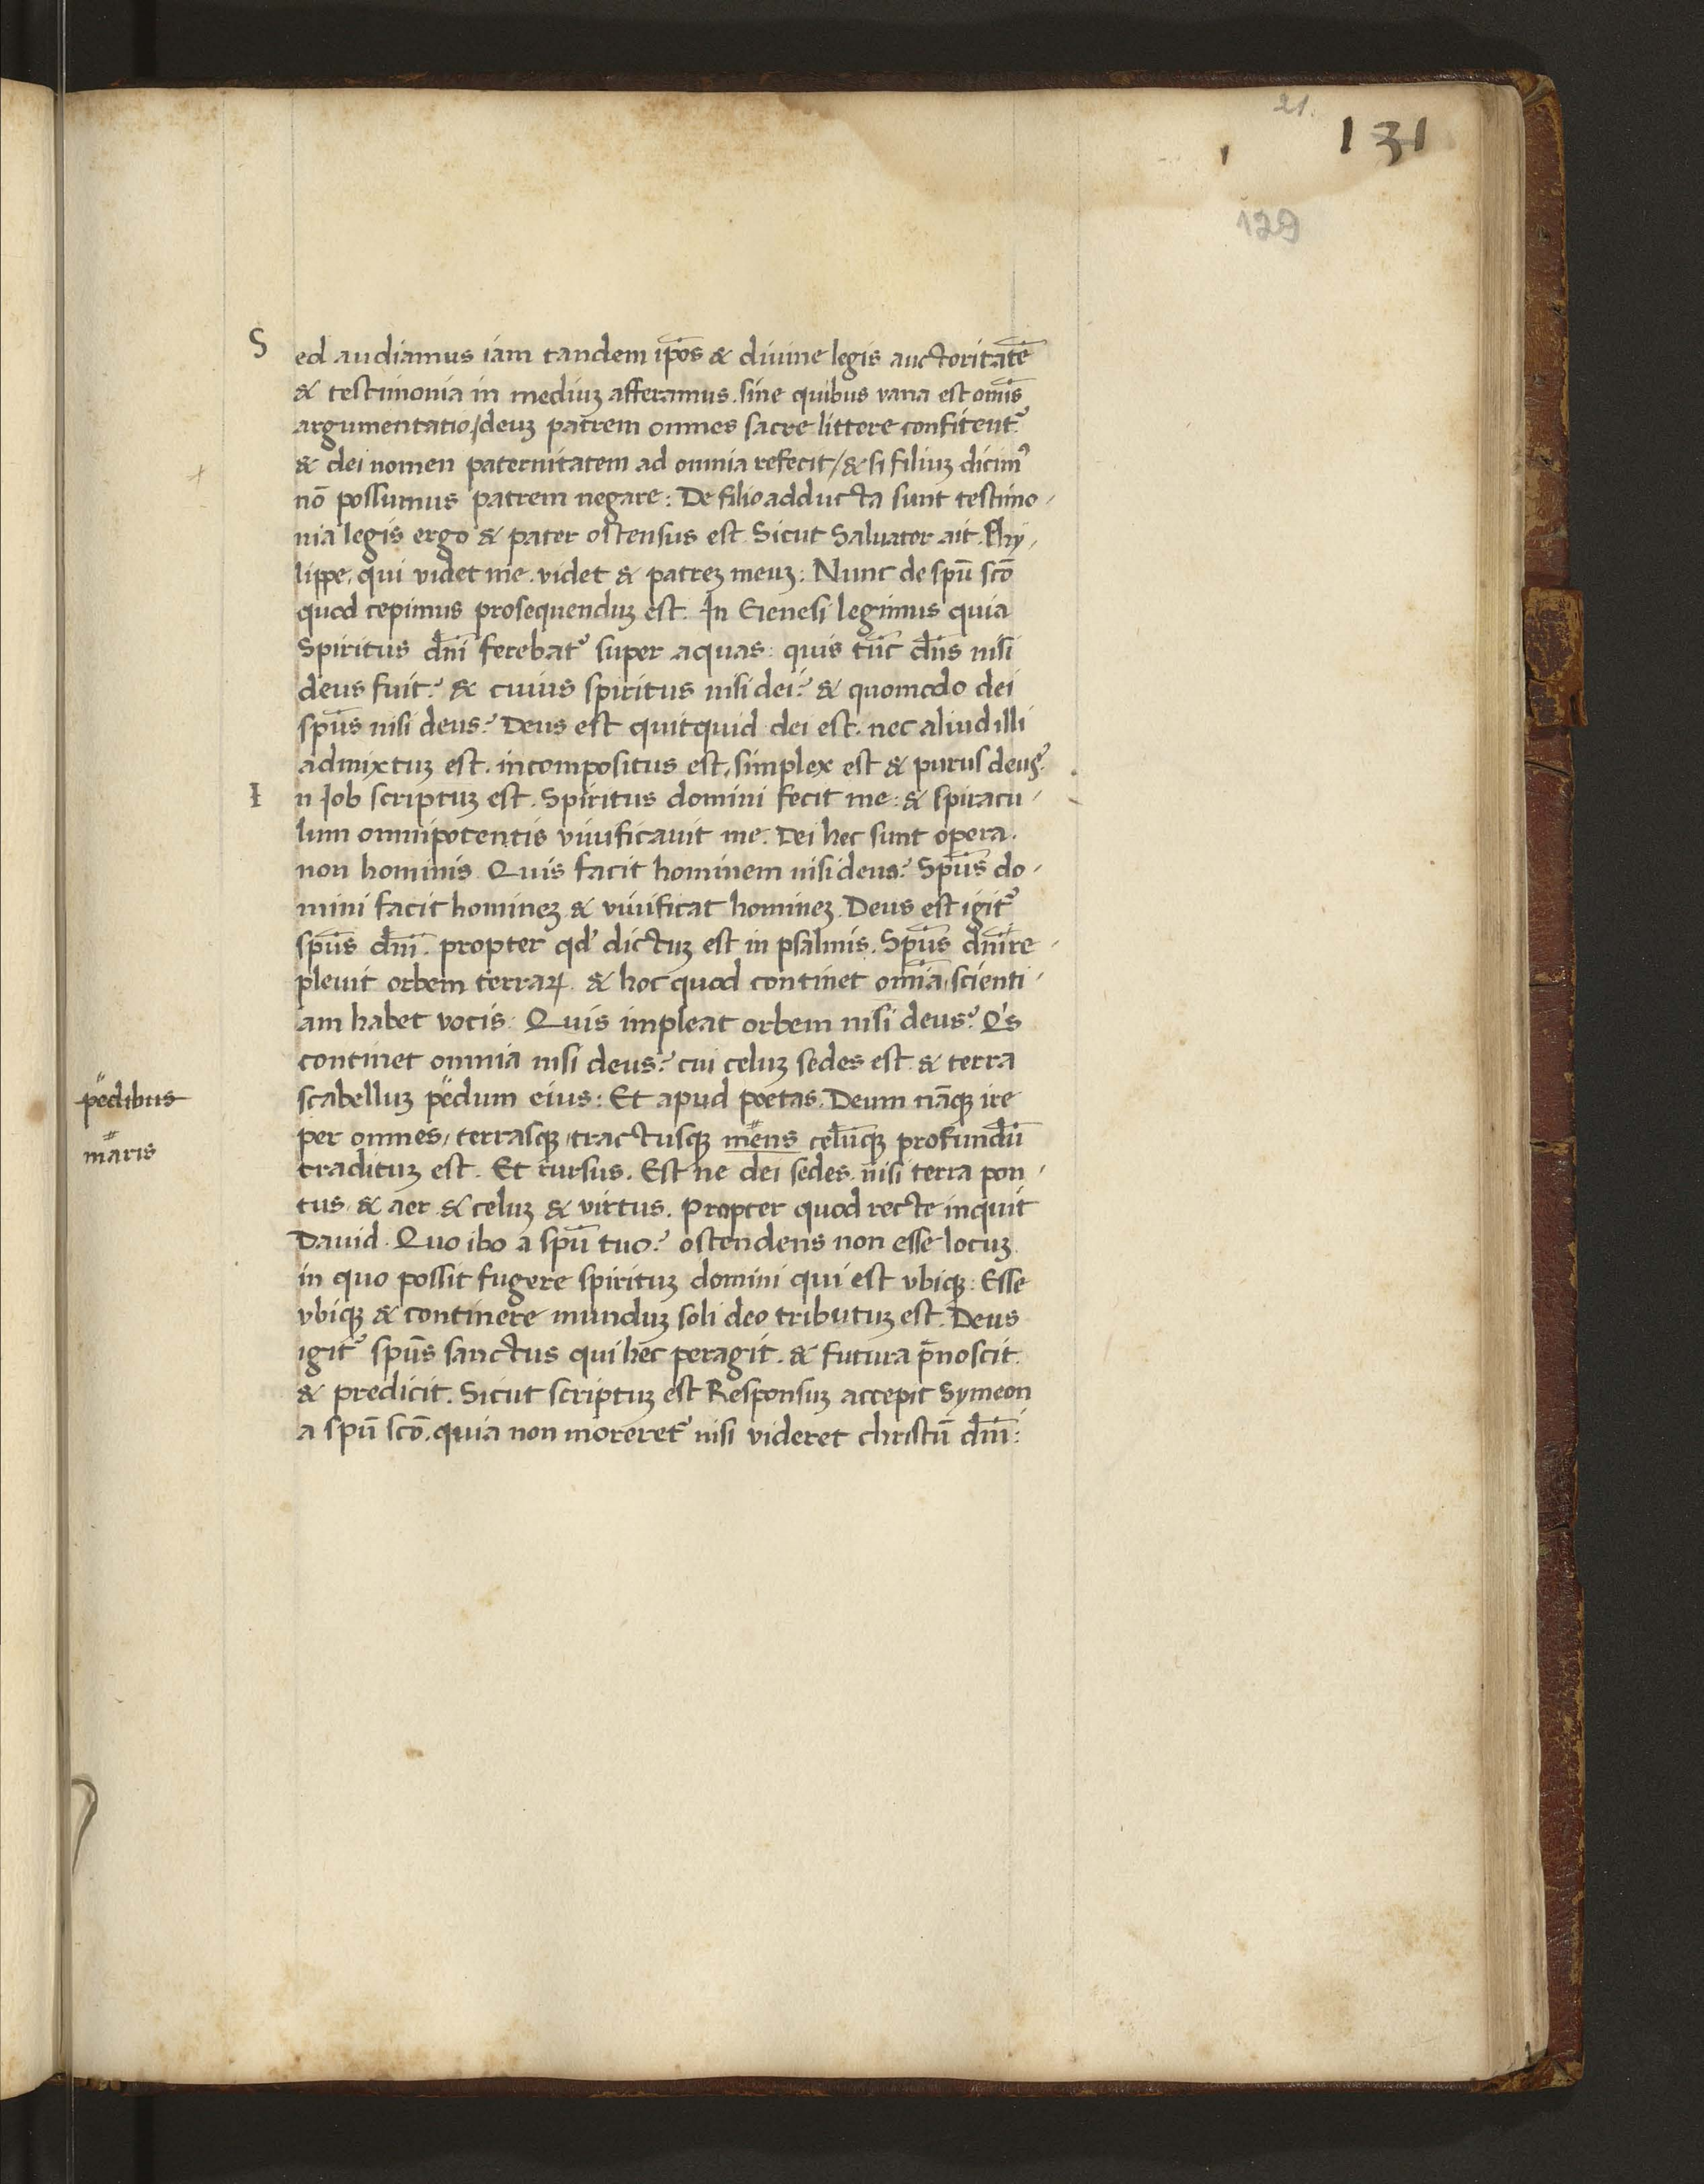 21.
131
129
Sed audiamus iam tandem ip̄os & diuine legis auctoritatē
& testimonia in mediuꝫ afferamus. sine quibus vana est om̄is
argumentatio, / deuꝫ patrem omnes sacre littere confitent᷑
& dei nomen paternitatem ad omnia refecit / & si filiuꝫ dicimꝰ
nō possumus patrem negare: De filio adducta sunt testimo-
nia legis ergo & pater ostensus est. Sicut Saluator ait. Phy-
lippe, qui videt me. videt & patreꝫ meuꝫ: Nunc de spū scō
quod cepimus prosequenduꝫ est. In Genesi legimus quia
Spiritus dn̄i ferebat᷑ super aquas: quis tūc dn̄s nisi
deus fuit? & cuius spiritus nisi dei? & quomodo dei
sp̄us nisi deus? Deus est quitquid dei est. nec aliud illi
admixtuꝫ est. incompositus est, simplex est & purus deus?
In Iob scriptuꝫ est. Spiritus domini fecit me: & spiracu-
lum omnipotentis viuificauit me. Dei hec sunt opera.
non hominis. Quis facit hominem nisi deus? Sp̄us do-
mini facit homineꝫ & viuificat homineꝫ. Deus est igit᷑
sp̄us dn̄i. propter qd' dictuꝫ est in psalmis. Sp̄us dn̄i re-
pleuit orbem terraꝝ. & hoc quod continet om̄ia, scienti-
am habet vocis: Quis impleat orbem nisi deus? Q's
continet omnia nisi deus? cui celuꝫ sedes est & terra
scabelluꝫ pedum eius: Et apud poetas. Deum nāqꝫ ire
per omnes, terrasqꝫ, tractusqꝫ mens celūqꝫ profundū
pedibus
maris
traditum est. Et rursus. Est ne dei sedes nisi terra pon-
tus & aer & celuꝫ & virtus. Propter quod recte inquit
Dauid. Quo ibo a spū tuo? ostendens non esse locuꝫ
in quo possit fugere spirituꝫ domini qui est vbiqꝫ: Esse
vbiqꝫ & continere munduꝫ soli deo tributuꝫ est. Deus
igit᷑ sp̄us sanctus qui hec peragit. & futura p̄noscit
& predicit. Sicut scriptuꝫ est Responsuꝫ accepit Symeon
a spū scō. quia non moreret᷑ nisi videret christū dn̄i: